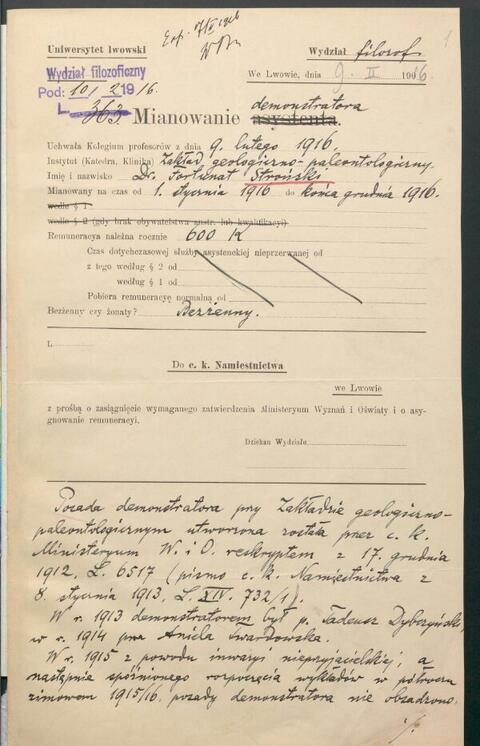 Exp. 17/II 1916
1
Uniwersytet lwowski
Wydział filozof
Wydział filozoficzny
We Lwowie, dnia 9. II 1916.
Pod: 10/2 1916.
L. 363.
Mianowanie demonstratora
asystenta.
Uchwała Kolegium profesorów z dnia 9. lutego 1916.
Instytut (Katedra, Klinika) Zakład geologiczno-paleontologiczny.
Imię i nazwisko Dr. Fortunat Stroński
Mianowany na czas od 1. stycznia 1916 do końca grudnia 1916.
według § 1
według § 2 (gdy brak obywatelstwa austr. lub kwalifikacyi)
Remuneracya należna rocznie 600 K
Czas dotychczasowej służby asystenckiej nieprzerwanej od
z tego według § 2 od
według § 1 od
Pobiera remuneracyę normalną od
Bezżenny czy żonaty? Bezżenny.
L.
Do c. k. Namiestnictwa
we Lwowie
z prośbą o zasiągnięcie wymaganego zatwierdzenia Ministeryum Wyznań i Oświaty i o asy-
gnowanie remuneracyi.
Dziekan Wydziału
Posada demonstratora przy Zakładzie geologiczno-
paleontologicznym utworzona została przez c. k.
Ministeryum W. i O. reskryptem z 17. grudnia
1912, L. 6517 (pismo c. k. Namiestnictwa z
8. stycznia 1913, L. XIV. 732/1).
W r. 1913 demonstratorem był p. Tadeusz Dybczyński,
w r. 1914 pna Aniela Swardowska.
W r. 1915 z powodu inwazyi nieprzyjacielskiej, a
następnie spóźnionego rozpoczęcia wykładów w półroczu
zimowem 1915/16 posady demonstratora nie obsadzono.
./.